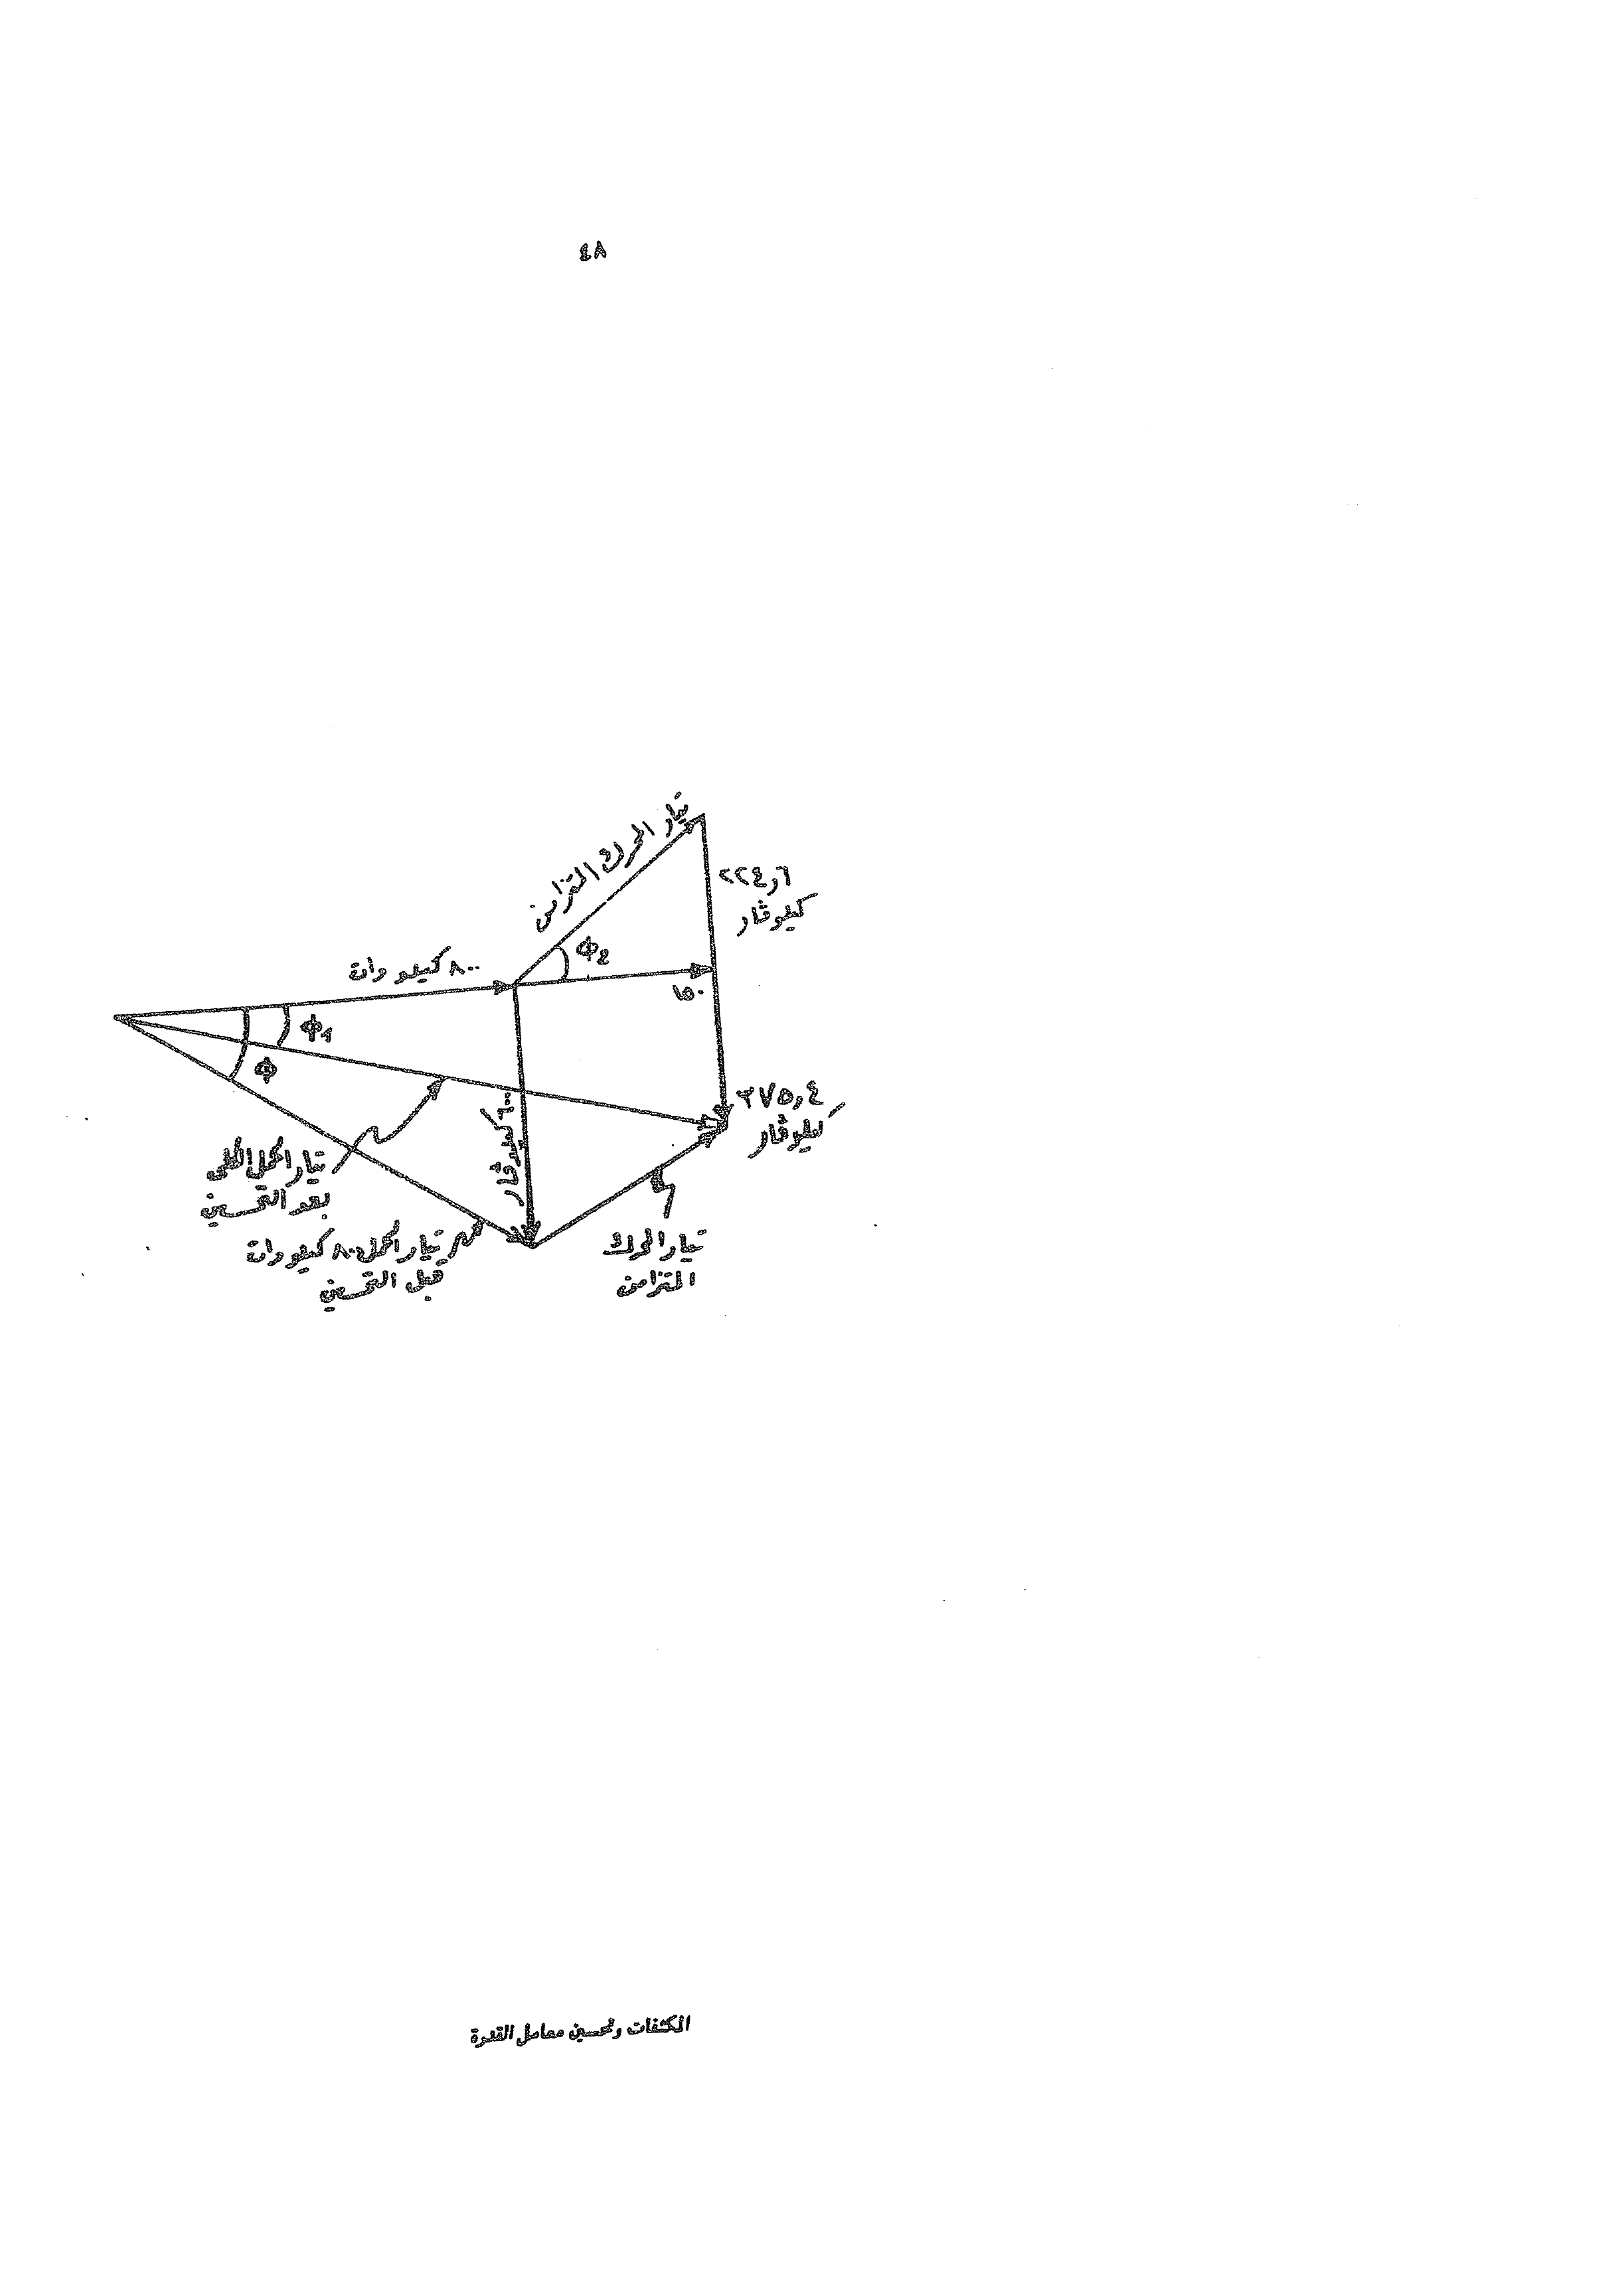 ٤٨
تيار المحرك المتزامن
٢٢٤,٦
كيلوڤار
٨٠٠ كيلو وات
Φ2
١٥٠
Φ1
Φ
٦٠٠ كيلوڤار
٣٧٥,٤
كيلوڤار
تيار الحمل الكلى
بعد التحسين
تيار الحمل ٨٠٠ كيلو وات
قبل التحسين
تيار المحرك
المتزامن
المكثفات وتحسين معامل القدرة